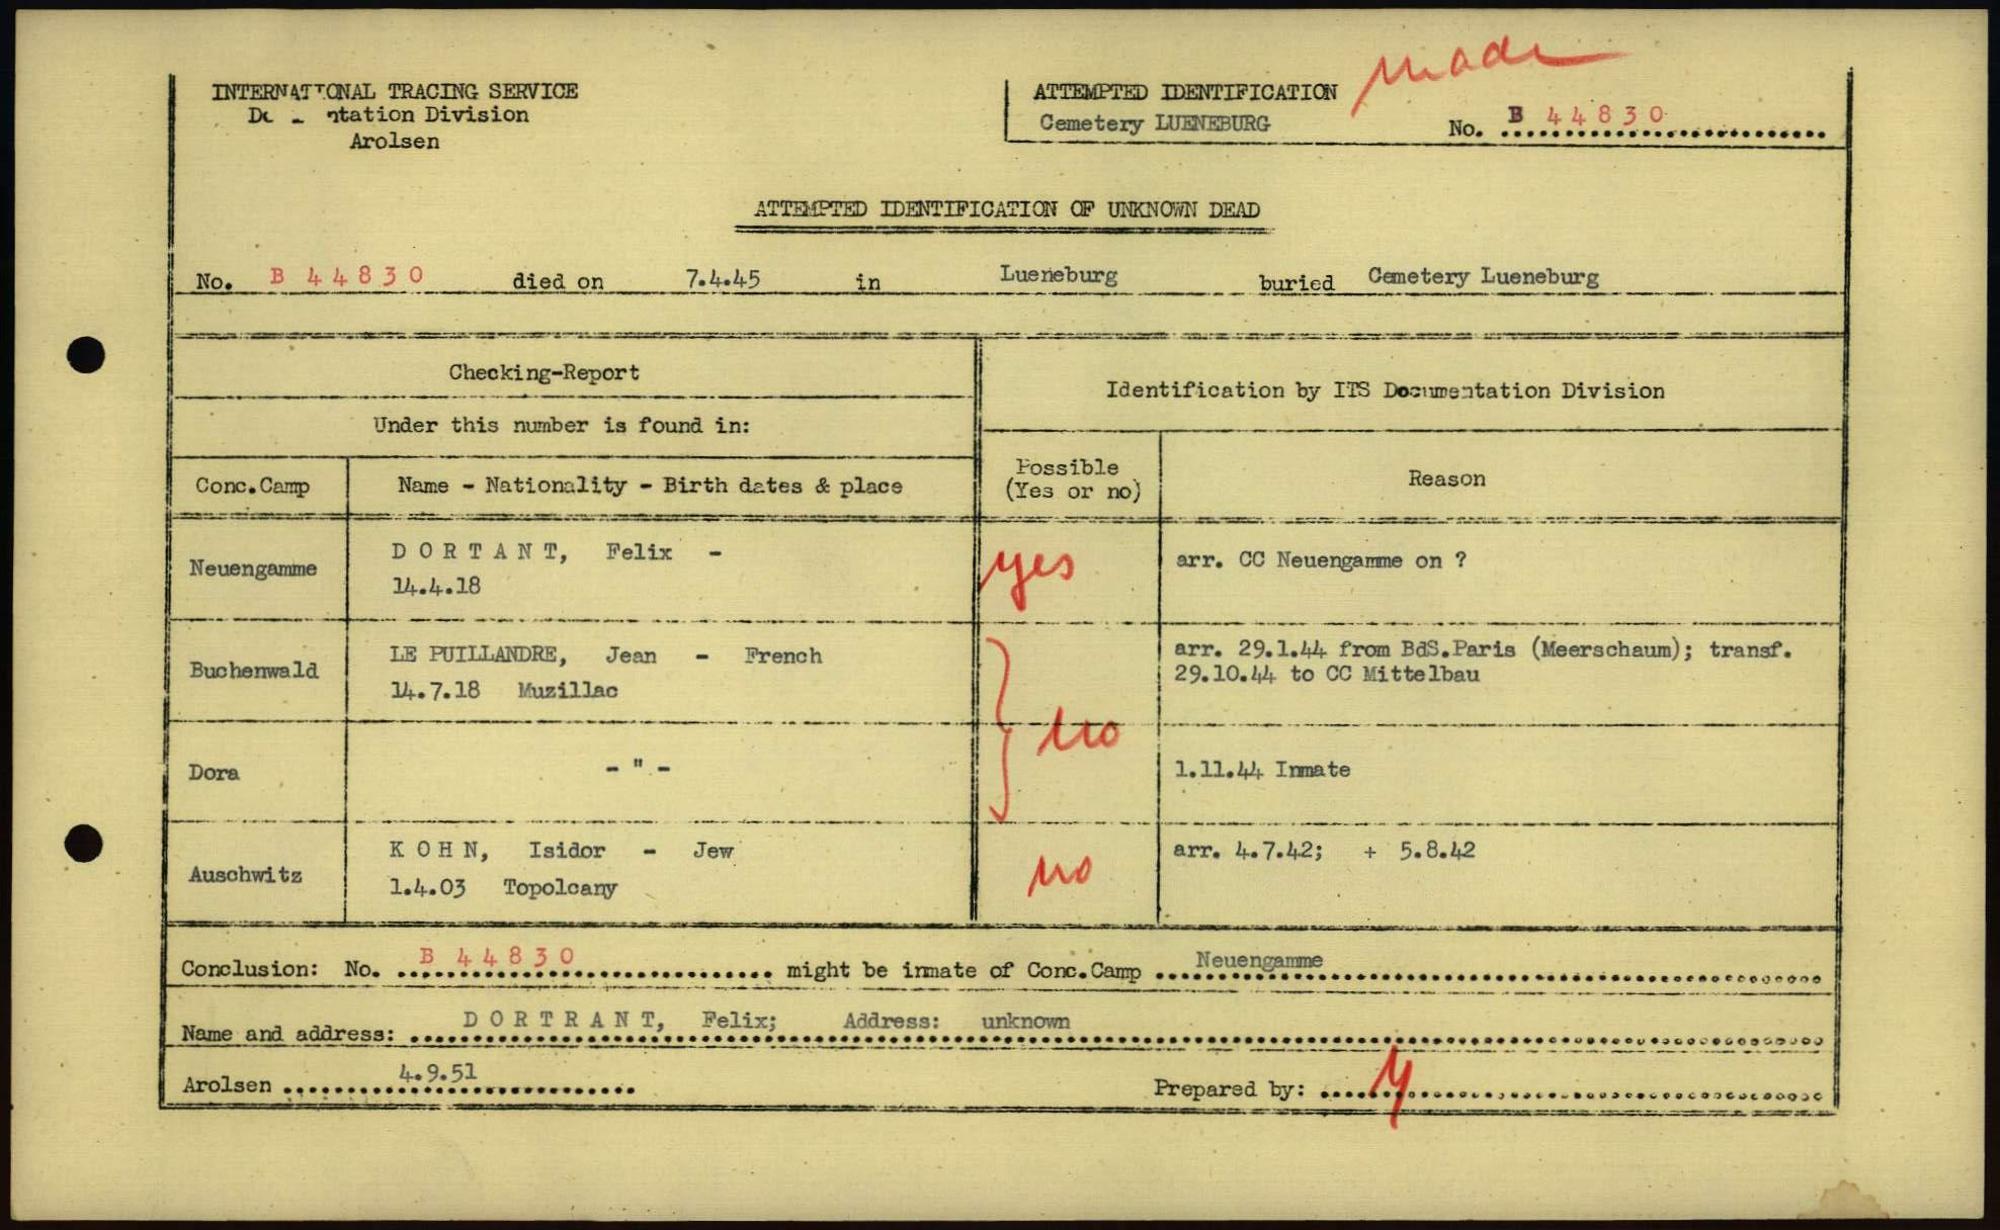 INTERNATIONAL TRACING SERVICE
ntation Division
Arolsen
ATTEMPTED IDENTIFICATION
made
Cemetery LUENEBURG
No. B 44830
ATTEMPTED IDENTIFICATION OF UNKNOWN DEAD
No. B 44830 died on 7.4.45 in Lueneburg buried Cemetery Lueneburg
Checking-Report
Identification by ITS Documentation Division
Under this number is found in:
Conc.Camp
Name - Nationality - Birth dates & place
Possible
(Yes or no)
Reason
Neuengamme
D O R T A N T, Felix -
14.4.18
yes
arr. CC Neuengamme on ?
Buchenwald
LE PUILLANDRE, Jean - French
14.7.18 Muzillac
no
arr. 29.1.44 from BdS.Paris (Meerschaum); transf.
29.10.44 to CC Mittelbau
Dora
- " -
1.11.44 Inmate
Auschwitz
K O H N, Isidor - Jew
1.4.03 Topolcany
no
arr. 4.7.42; + 5.8.42
Conclusion: No. B 44830 might be inmate of Conc.Camp Neuengamme
Name and address: D O R T R A N T, Felix; Address: unknown
Arolsen 4.9.51
Prepared by: